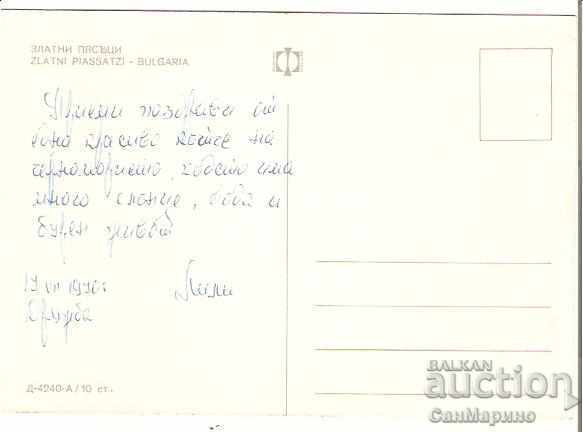 ЗЛАТНИ ПЯСЪЦИ
ZLATNI PIASSATZI - BULGARIA
Приеми поздрави от
едно красиво кътче на
черноморието, където има
много слънце, вода и
бурен живот
17 VII 1970г Лили
Дружба
Д-4240-А / 10 ст.
BALKAN
auction
СанМарино